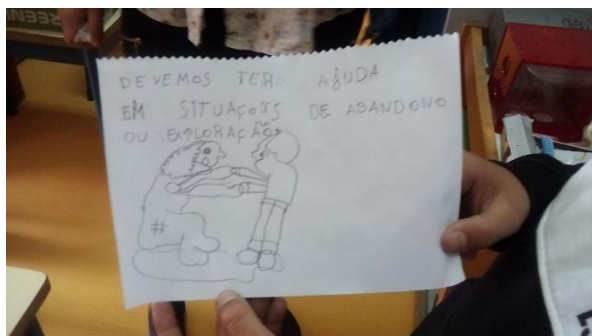 DEVEMOS TER AJUDA
EM SITUAÇOIS DE ABANDONO
OU EXPLORAÇÃO
#